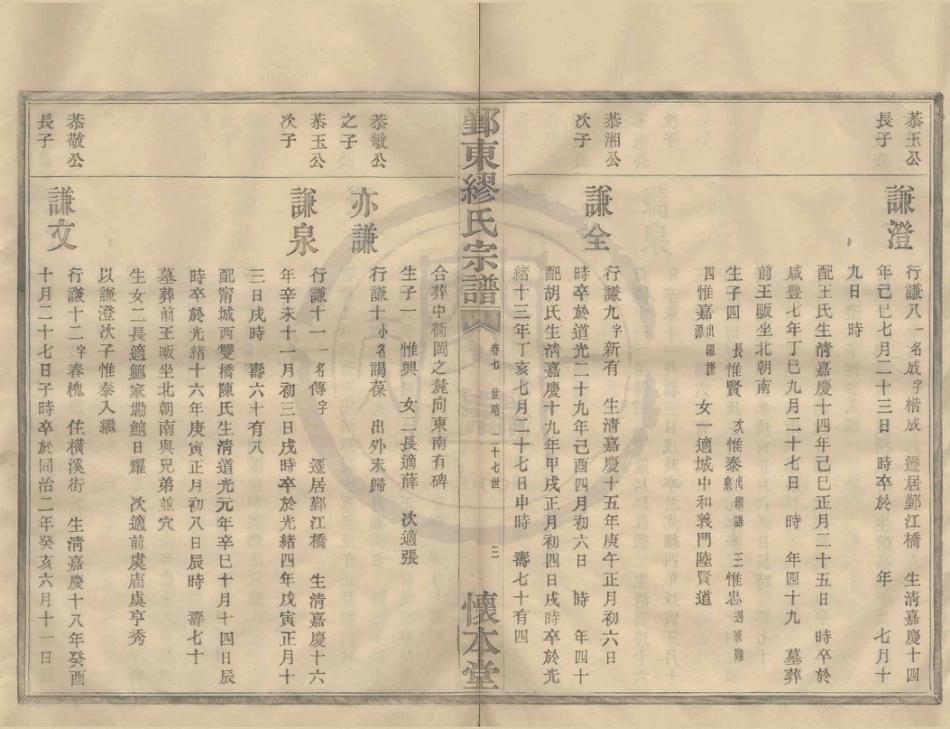 恭玉公
長子
謙澄
行謙八 一名成字楷成 遷居鄞江橋 生清嘉慶十四
年己巳七月二十三日 時卒於 年 七月十
九日 時
配王氏生清嘉慶十四年己巳正月二十五日 時卒於
咸豐七年丁巳九月二十七日 時 年四十九 墓葬
前王畈坐北朝南
生子四 長惟賢 次惟泰出繼謙泉 三惟忠遇髮難
四惟嘉出繼謙源 女一適城中和義門陸賢道
恭湘公
次子
謙全
行謙九字新有 生清嘉慶十五年庚午正月初六日
時卒於道光二十九年己酉四月初六日 時 年四十
配胡氏生清嘉慶十九年甲戌正月初四日戌時卒於光
緒十三年丁亥七月二十七日申時 壽七十有四
鄞東繆氏宗譜 卷七 世略 二十七世 三 懷本堂
合葬中衕岡之麓向東南有碑
生子一 惟興 女二長適薛 次適張
恭敏公
之子
亦謙
行謙十小名謁葆 出外未歸
恭玉公
次子
謙泉
行謙十一一名傳字 遷居鄞江橋 生清嘉慶十六
年辛未十一月初三日戌時卒於光緒四年戊寅正月十
三日戌時 壽六十有八
配甯城西雙橋陳氏生清道光元年辛巳十月十四日辰
時卒於光緒十六年庚寅正月初八日辰時 壽七十
墓葬前王畈坐北朝南與兄弟並穴
生女二長適鮑家墈鮑日耀 次適前虞虞亨秀
以謙澄次子惟泰入繼
恭敬公
長子
謙文
行謙十二字春槐 住橫溪街 生清嘉慶十八年癸酉
十月二十七日子時卒於同治二年癸亥六月十一日